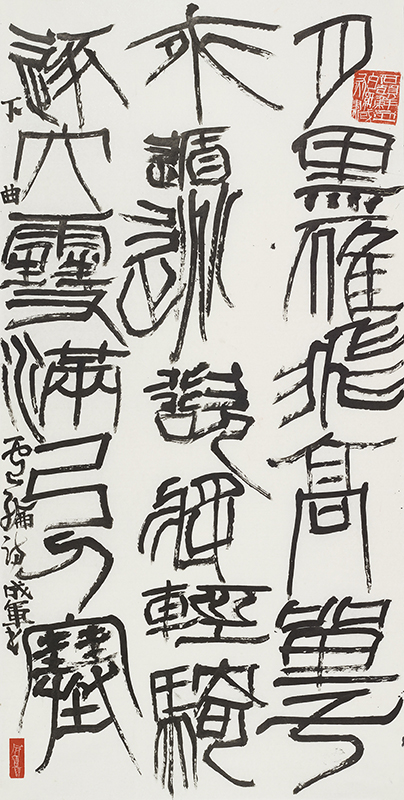 月黑雁飛高單于
夜遁逃欲將輕騎
逐大雪滿弓刀塞
下曲 盧綸詩 成軍书